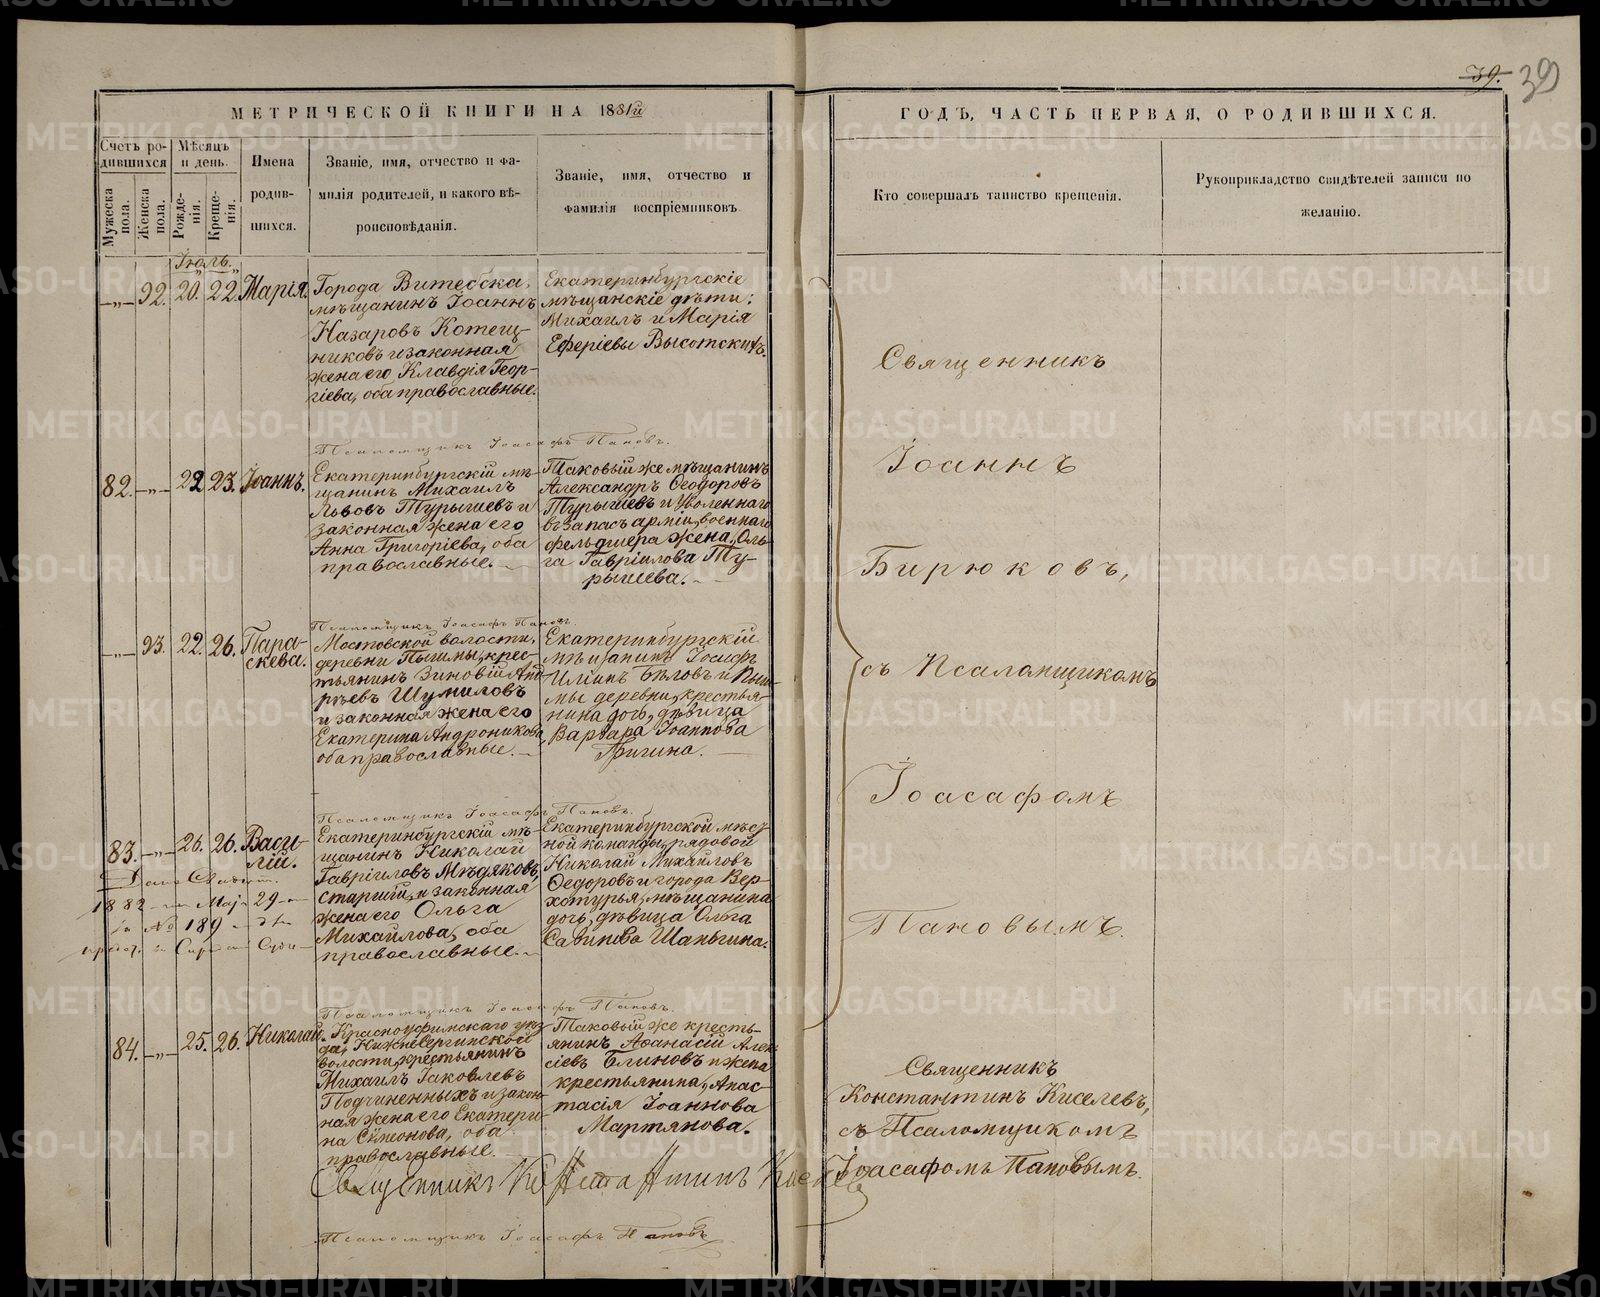 39. 39
МЕТРИЧЕСКОЙ КНИГИ НА 1881й
ГОДЪ, ЧАСТЬ ПЕРВАЯ, О РОДИВШИХСЯ.
Счетъ родившихся
Мужеска пола.
Женска пола.
Мѣсяцъ и день.
Рожденія.
Крещенія.
Имена родившихся.
Званіе, имя, отчество и фамилія родителей, и какого вѣроисповѣданія.
Званіе, имя, отчество и фамилія воспріемниковъ.
Кто совершалъ таинство крещенія.
Рукоприкладство свидѣтелей записи по желанію.
Іюль.
-„- 92. 20. 22. Марія.
Города Витебска,
мѣщанинъ Іоаннъ
Назаровъ Котещ-
никовъ и законная
жена его Клавдія Геор-
гіева, оба православные.
Екатеринбургскіе
мѣщанскіе дѣти:
Михаилъ и Марія
Еферіевы Высотскихъ.
Псаломщикъ Іоасафъ Пановъ.
82. -„- 22 23. Іоаннъ.
Екатеринбургскій мѣ-
щанинъ Михаилъ
Львовъ Турышевъ и
законная жена его
Анна Григоріева, оба
православные.
Таковый же мѣщанинъ
Александръ Ѳеодоровъ
Турышевъ и уволеннаго
въ запасъ арміи, военнаго
фельдшера жена, Оль-
га Гавріилова Ту-
рышева.
Псаломщикъ Іоасафъ Пановъ.
-„- 93. 22. 26. Пара-
скева.
Мостовской волости,
деревни Пышмы, крес-
тьянинъ Зиновій Анд-
рѣевъ Шумиловъ
и законная жена его
Екатерина Андроникова,
оба православные.
Екатеринбургскій
мѣщанинъ Іосифъ
Илiинъ Бѣловъ и Пыш-
мы деревни, крестья-
нина дочь, дѣвица
Варвара Іоаннова
Псаломщикъ Іоасафъ Пановъ.
83. -„- 26. 26. Васи-
лій.
Екатеринбургскій мѣ-
щанинъ Николай
Гавріиловъ Мѣдяковъ,
старшій, и законная
жена его Ольга
Михайлова, оба
православные.
Екатеринбургской мѣст-
ной команды, рядовой
Николай Михайловъ
Ѳедоровъ и города Вер-
хотурья, мѣщанина
дочь, дѣвица Ольга
Савинова Шаньгина.
1882 Мая 29
за № 189
Псаломщикъ Іоасафъ Пановъ.
84. -„- 25. 26. Николай.
Красноуфимскаго уѣз-
да, Нижнесергинской
волости, крестьянинъ
Михаилъ Іаковлевъ
Подчиненныхъ и закон-
ная жена его Екатери-
на Сѵмеонова, оба
православные.
Таковый же кресть-
янинъ Аѳанасій Алек-
сіевъ Блиновъ и жена
крестьянина, Анас-
тасія Іоаннова
Мартянова.
Священникъ Константинъ Киселевъ
Псаломщикъ Іоасафъ Пановъ
Священникъ
Іоаннъ
Бирюковъ,
съ Псаломщикомъ
Іоасафомъ
Пановымъ.
Священникъ
Константинъ Киселевъ,
съ Псаломщикомъ
Іоасафомъ Пановымъ.
METRIKI.GASO-URAL.RU